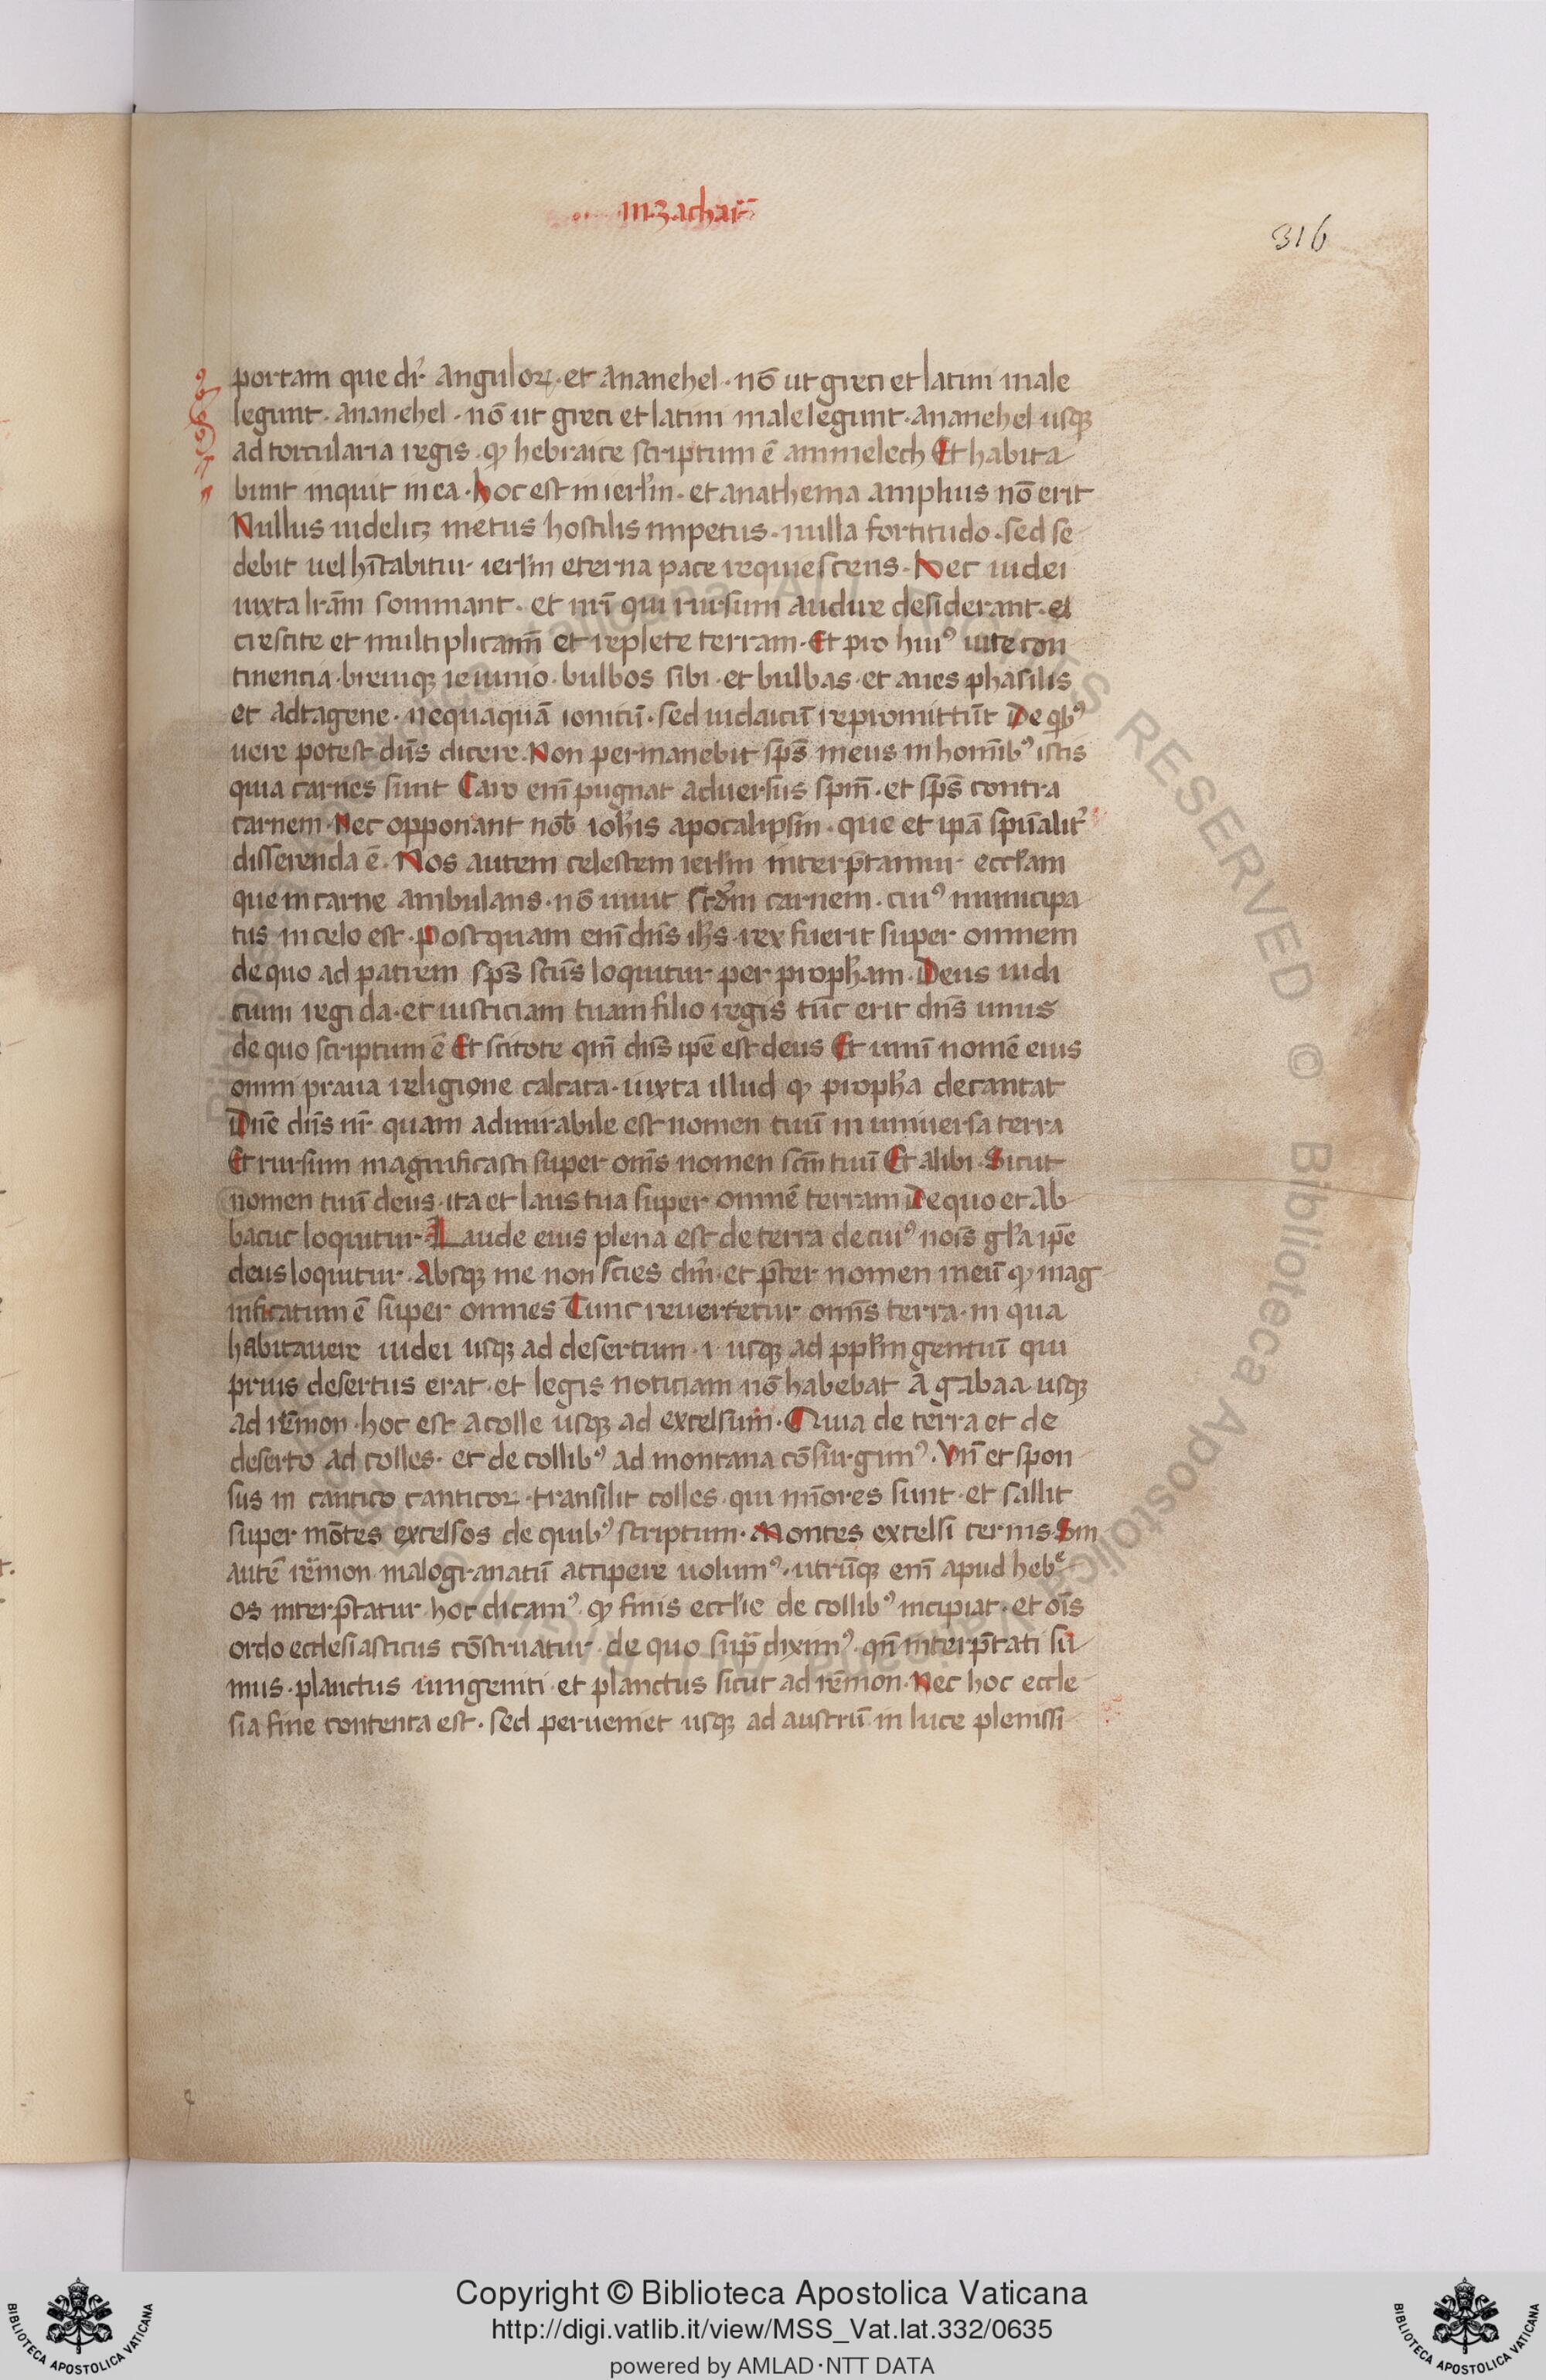 in zachar̅
316
portam que dr̅ anguloꝝ. et ananehel. nō ut greci et latini male
legunt. ananehel. nō ut greci et latini male legunt. ananehel usqꝫ
ad torcularia regis. ꝙ hebraice scriptum ē ammelech Et habita
bunt inquit in ea. hoc est in ierl̅m. et anathema amplius nō erit
Nullus uidelicꝫ metus hostilis impetus. nulla fortitudo. sed se
debit uel hītabitur ierl̅m eterna pace requiescens. hec iudei
iuxta lr̅am somniant. et nr̅i qui rursum audire desiderant. el
crescite et multiplicamī et replete terram. Et pro huiꝰ uite con
tinentia. breuiqꝫ ieiunio. bulbos sibi. et bulbas. et aues phasilis
et adtagene. nequaquā ionicū. sed iudaicū repromittūt De qⁱbꝰ
uere potest dn̅s dicere. Non permanebit sp̅s meus in homībꝰ istis
quia carnes sunt Caro eni̅ pugnat aduersus spm̅. et sp̅s contra
carnem. Nec opponant nob̅ ioh̅is apocalipsin. que et ipā spūalit᷑
disserenda ē. Nos autem celestem ierl̅m interp̅tamur eccl̅am
que in carne ambulans. nō uiuit scd̅m carnem. cuiꝰ municipa
tus in celo est. Postquam eni̅ dn̅s ih̅s rex fuerit super omnem
de quo ad patrem sp̅s sc̅us loquitur per proph̅am. Deus iudi
cium regi da. et iusticiam tuam filio regis tūc erit dn̅s unus
de quo scriptum ē Et scitote qm̅ dn̅s ipē est deus Et unū nomē eius
omni praua religione calcata. iuxta illud ꝙ proph̅a decantat
Dn̅e dn̅s nr̅ quam admirabile est nomen tuū in uniuersa terra
Et rursum magnificasti super om̅s nomen scm̅ tuū Et alibi. Sicut
nomen tuū deus. ita et laus tua super omnē terram De quo et Ab
bacuc loquitur. Laude eius plena est de terra de cuiꝰ noīs gl̅a ipē
deus loquitur. Absqꝫ me non scies dm̅. et p̅ter nomen meū ꝙ mag
nificatum ē super omnes Tunc reuertetur omīs terra. in qua
habitauere iudei usqꝫ ad desertum. i. usqꝫ ad ppl̅m gentiū qui
prius desertus erat. et legis noticiam nō habebat A gabaa usqꝫ
ad rēmon. hoc est a colle usqꝫ ad excelsum. Quia de terra et de
deserto ad colles. et de collibꝰ ad montana cōsurgimꝰ. Vn̅ et spon
sus in cantico canticoꝝ. transilit colles. qui mīores sunt. et sallit
super mōtes excelsos de quibꝰ scriptum. Montes excelsi ceruis. Sin
autē rēmon malogranatū accipere uolumꝰ. utrūqꝫ eni̅ apud hebᵉ
os interp̅tatur. hoc dicamꝰ. ꝙ finis eccl̅ie de collibꝰ incipiat. et oīs
ordo ecclesiasticus cōstruatur. de quo sup̅ diximꝰ. qn̅ interp̅tati su
mus. planctus unigeniti. et planctus sicut ad rēmon. Nec hoc eccle
sia fine contenta est. sed perueniet usqꝫ ad austrū. in luce plenissi
Copyright © Biblioteca Apostolica Vaticana
http://digi.vatlib.it/view/MSS_Vat.lat.332/0635
powered by AMLAD·NTT DATA